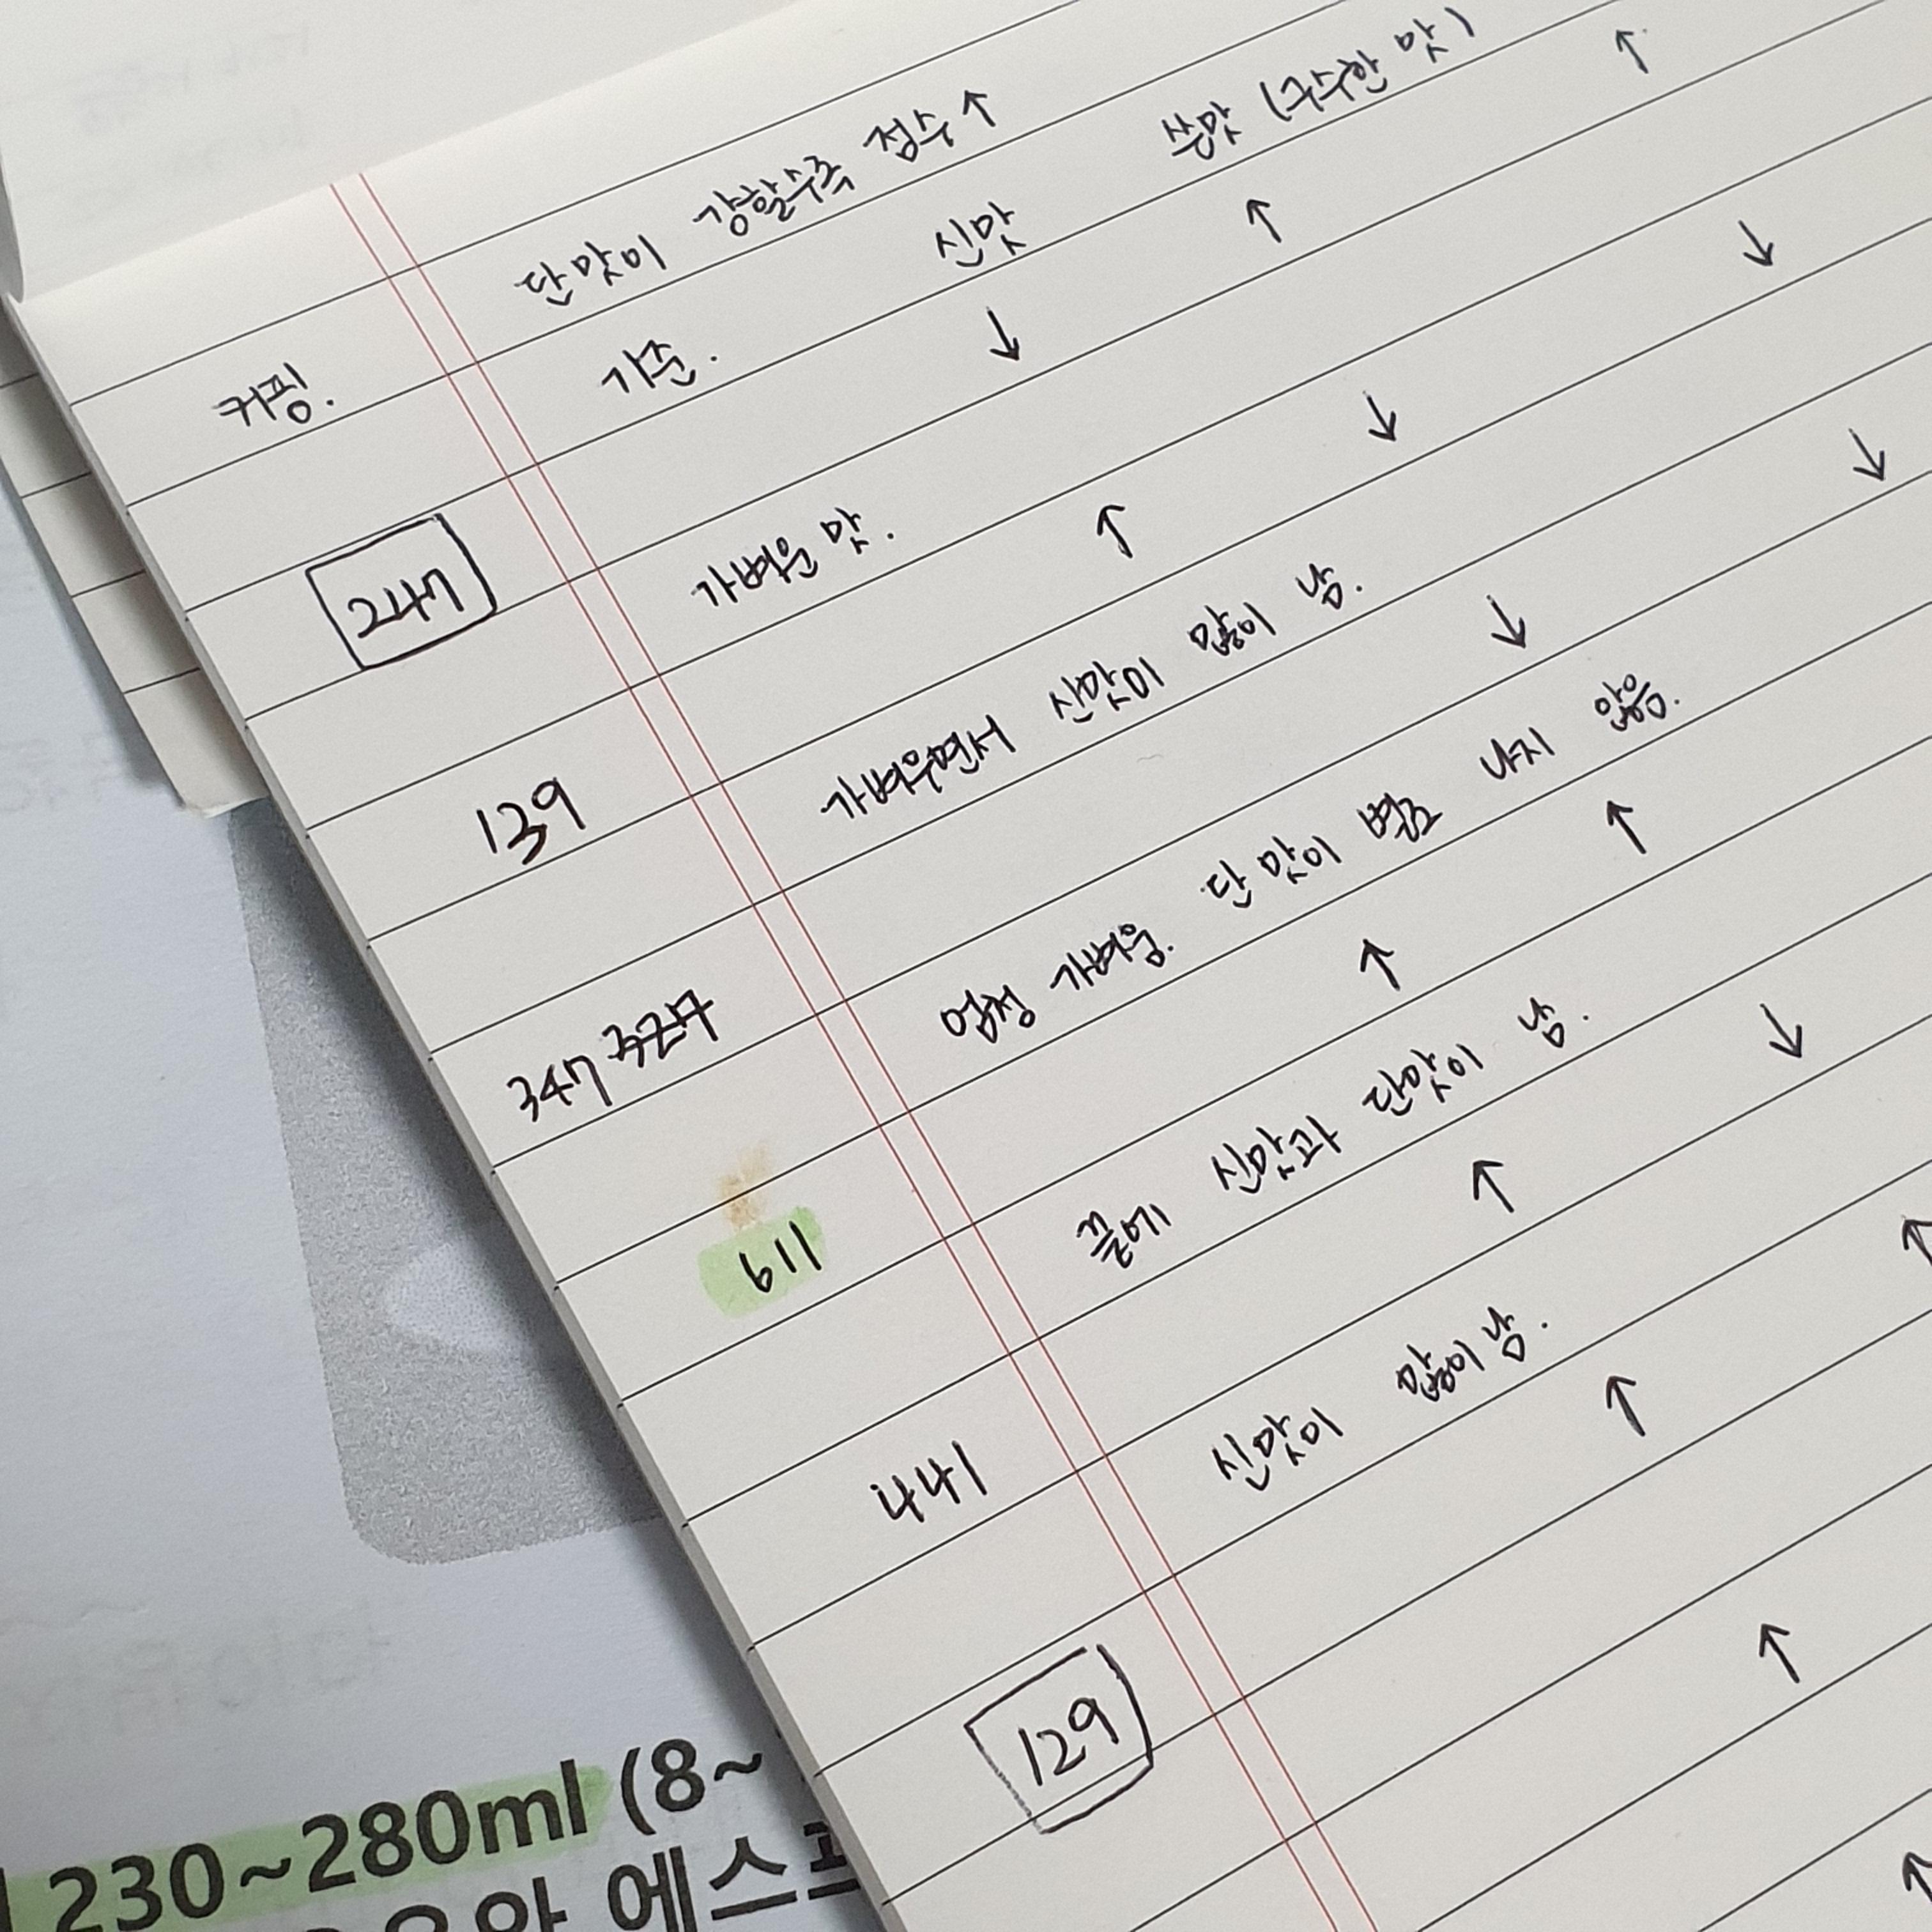 커핑. 단맛이 강할수록 점수↑
기준. 신맛 쓴맛 (구수한 맛)
247 ↓ ↑ ↑
가벼운 맛.
139 ↑ ↓ ↓
가벼우면서 신맛이 많이 남.
347 327 ↓ ↓
엄청 가벼움. 단맛이 별로 나지 않음.
611 ↑ ↑
끝에 신맛과 단맛이 남.
441 ↑ ↓
신맛이 많이남.
129 ↑ ↑
↑
↑
230~280ml (8~
에스프